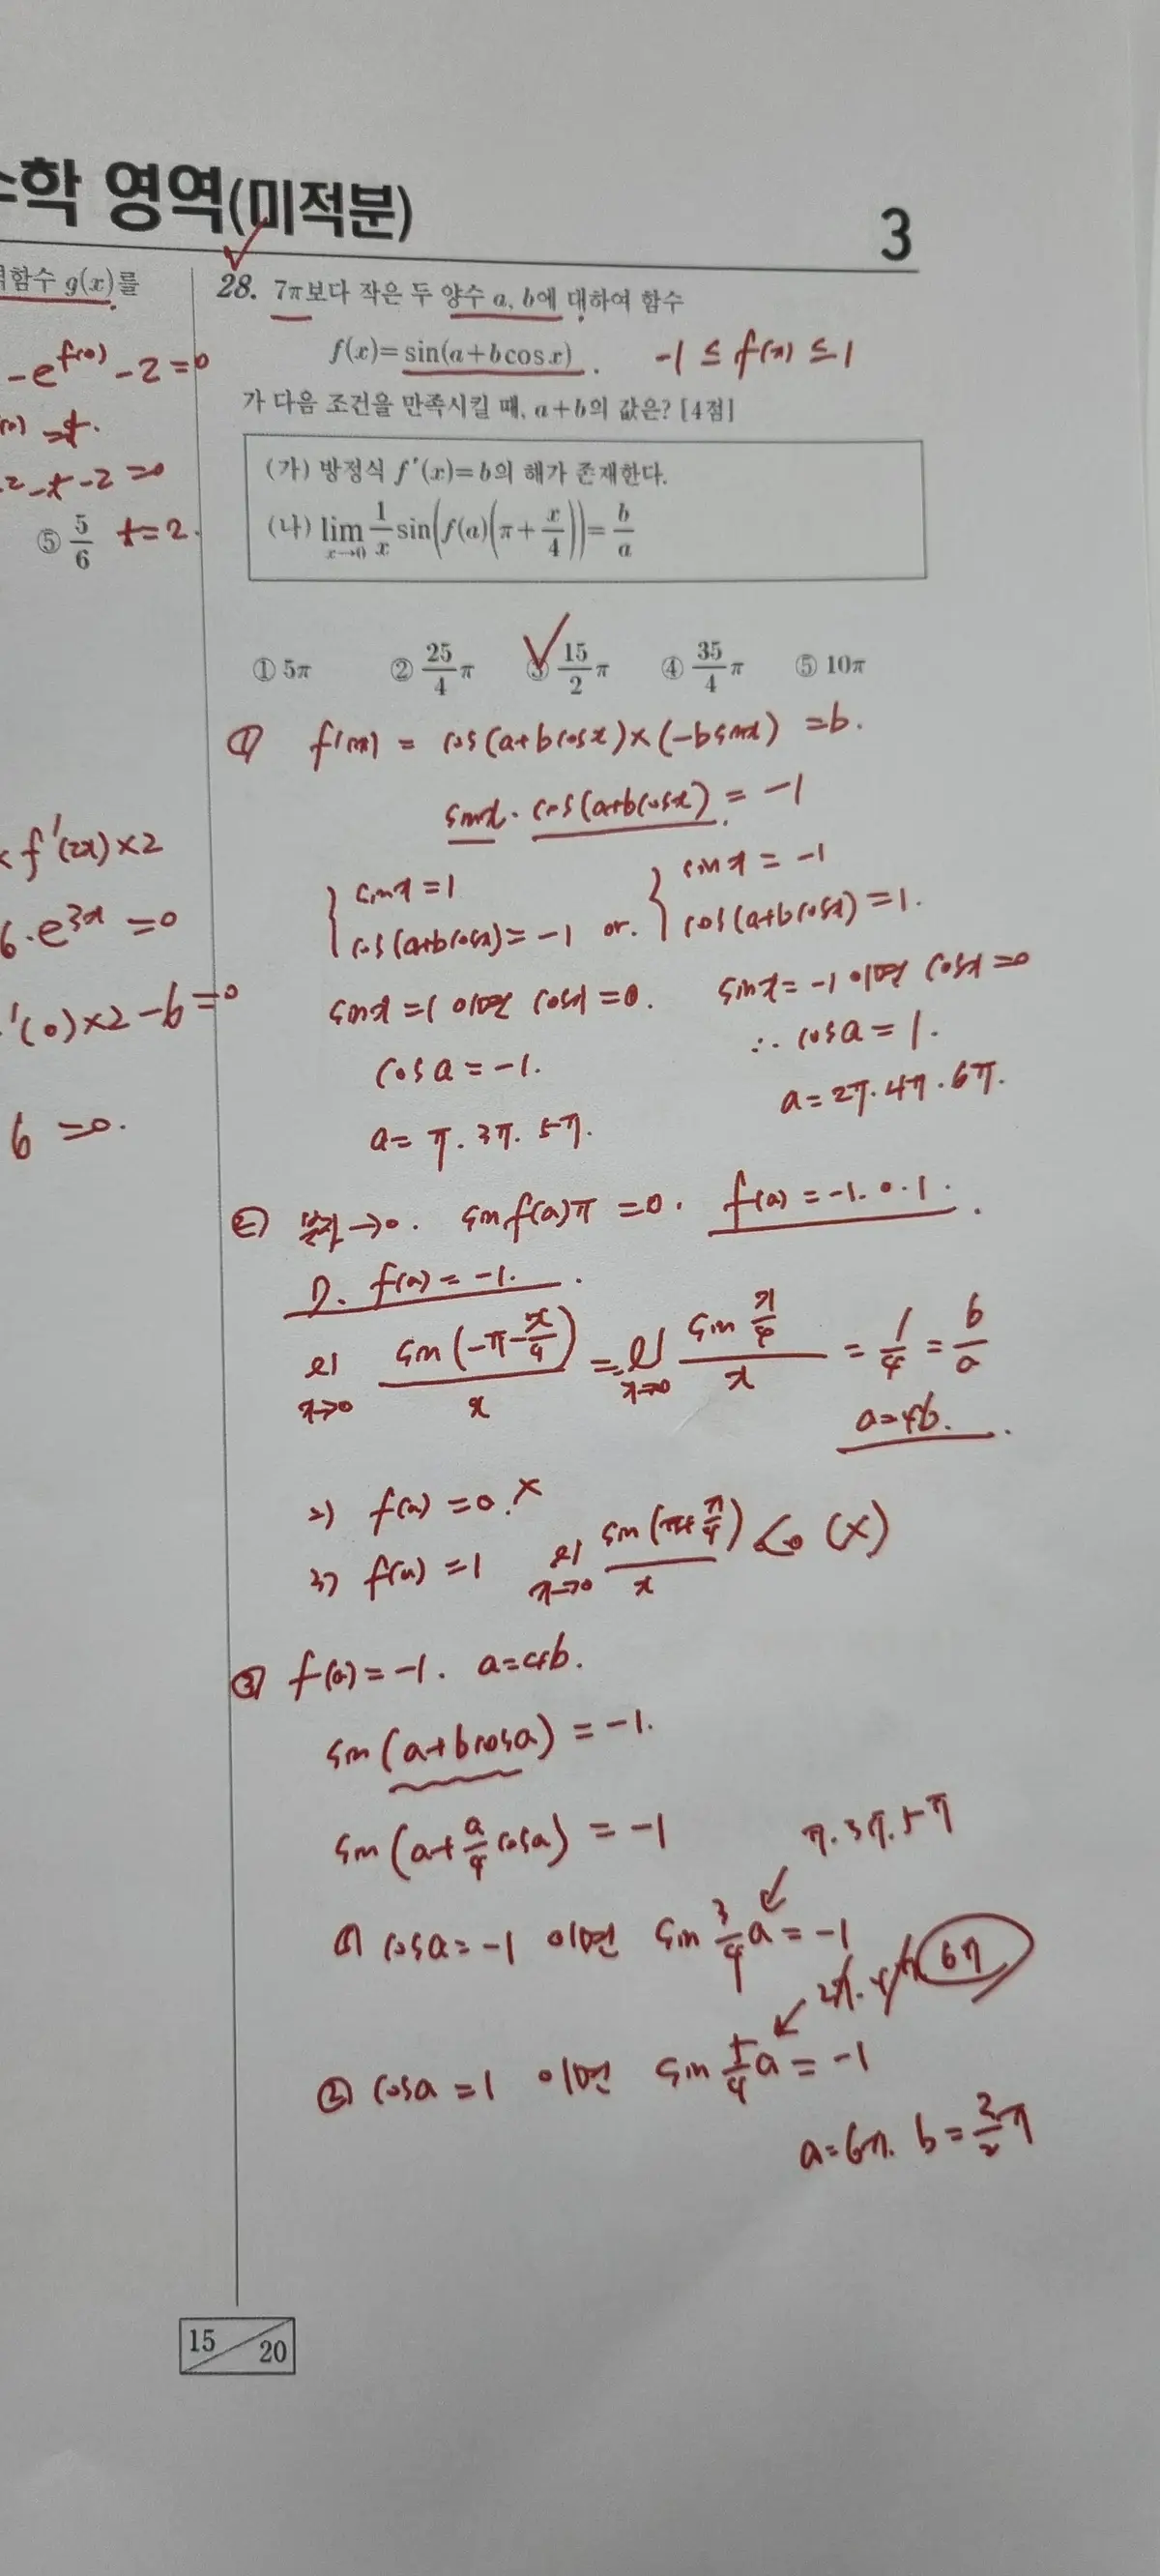 수학 영역(미적분)
3
역함수 g(x)를
-e^f(0) -2=0
(0) =t.
2-t-2=0
⑤ 5/6 t=2.
f'(2x)×2
6·e^3x=0
'(0)×2-6=0
6=0.
28. 7π보다 작은 두 양수 a, b에 대하여 함수
f(x)=sin(a+bcosx). -1≤f(x)≤1
가 다음 조건을 만족시킬 때, a+b의 값은? [4점]
(가) 방정식 f'(x)=b의 해가 존재한다.
(나) lim x→0 1/x sin(f(a)(π+x/4))=b/a
① 5π ② 25/4 π ③ 15/2 π ④ 35/4 π ⑤ 10π
① f'(x) = cos(a+bcosx)×(-bsinx) =b.
sinx·cos(a+bcosx) = -1
{ sinx=1 cos(a+bcosx)=-1 or. { sinx=-1 cos(a+bcosx)=1.
sinx=1 이면 cosx=0. sinx=-1 이면 cosx=0
cosa=-1. ∴ cosa=1.
a= π. 3π. 5π. a=2π. 4π. 6π.
② 분자→0. sin f(a)π =0. f(a)=-1. 0. 1.
1). f(a)=-1.
lim x→0 sin(-π-x/4)/x = lim x→0 sin x/4 / x = 1/4 = b/a
a=4b.
2) f(a)=0. ×
3) f(a)=1 lim x→0 sin(π+x/4)/x <0 (×)
③ f(a)=-1. a=4b.
sin(a+bcosa)=-1.
sin(a+a/4 cosa) = -1
π. 3π. 5π
① cosa=-1 이면 sin 3/4 a=-1
2π. 4π. 6π
② cosa=1 이면 sin 5/4 a=-1
a=6π. b=3/2 π
15/20